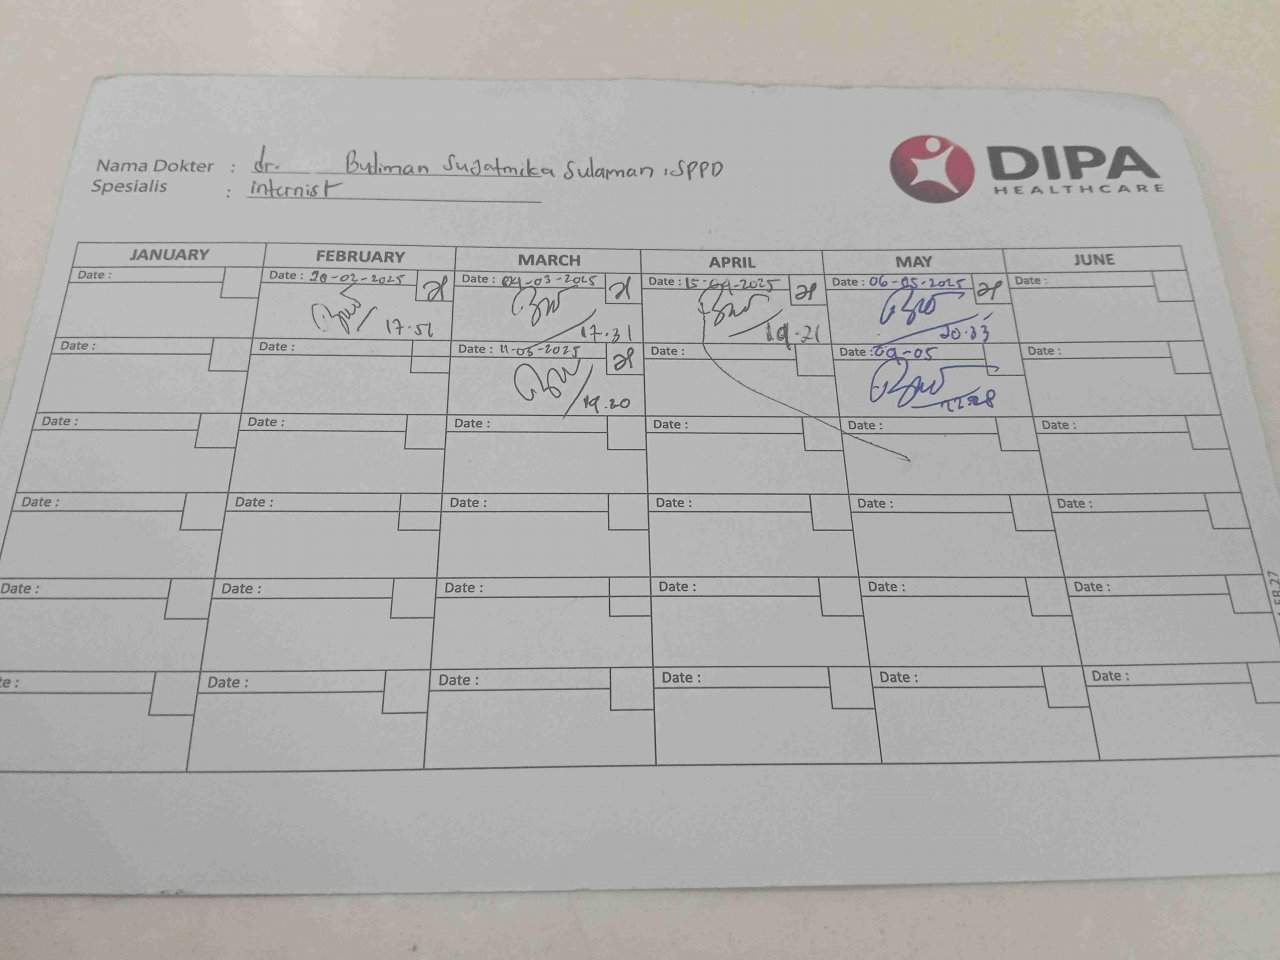 DIPA
HEALTHCARE
Nama Dokter : dr. Buliman Sujatmika Sulaman, SPPD
Spesialis : Internist
JANUARY FEBRUARY MARCH APRIL MAY JUNE
Date : Date : 20-02-2025 Date : 04-03-2025 Date : 15-04-2025 Date : 06-05-2025 Date :
17.51 17.31 19.21 20.33
Date : Date : Date : 11-03-2025 Date : Date : 09-05 Date :
19.20
Date : Date : Date : Date : Date : Date :
Date : Date : Date : Date : Date : Date :
Date : Date : Date : Date : Date : Date :
te : Date : Date : Date : Date : Date :